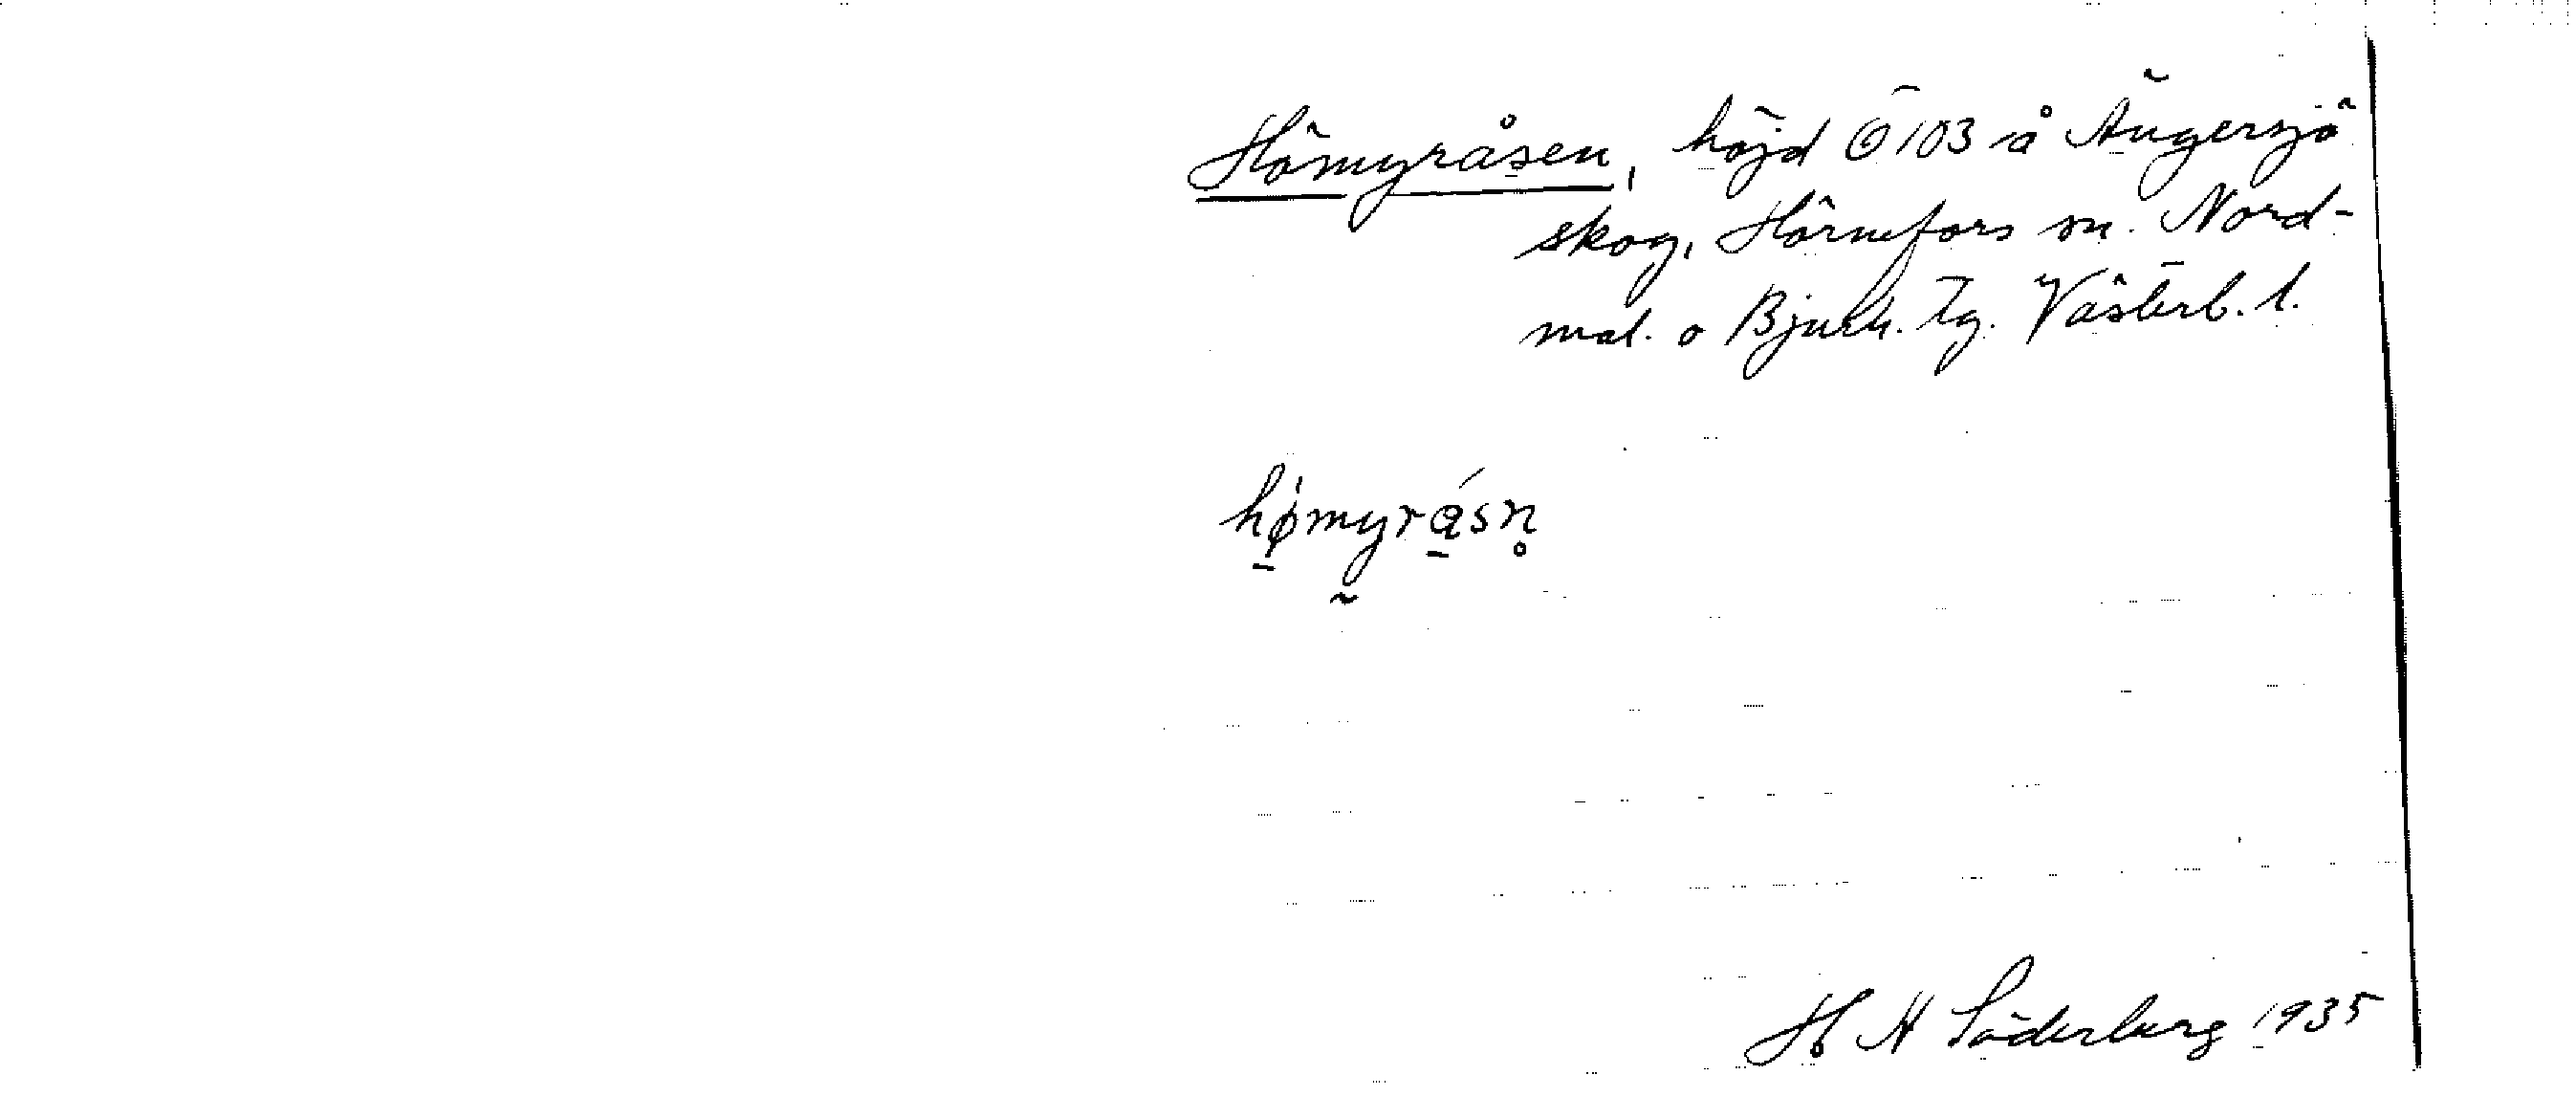 Hömyråsen, höjd Ö 103 å Ängersjö
skog, Hörnefors sn. Nord-
mal. o Bjurh. tg. Västerb. l.
hømyråsn̥
H N Söderberg 1935